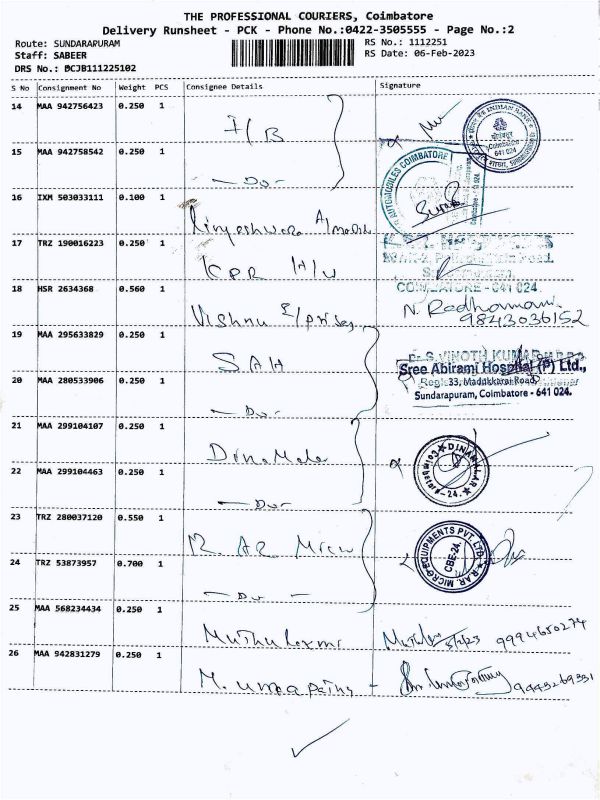 THE PROFESSIONAL COURIERS, Coimbatore
Delivery Runsheet - PCK - Phone No.:0422-3505555 - Page No.:2
Route: SUNDARAPURAM
RS No.: 1112251
Staff: SABEER
RS Date: 06-Feb-2023
DRS No.: BCJB111225102
S No Consignment No Weight PCS Consignee Details Signature
14 MAA 942756423 0.250 1 I/B
INDIAN BANK
Coimbatore
641 024
15 MAA 942758542 0.250 1 -Do-
AUTOMOBILES COIMBATORE
16 IXM 503033111 0.100 1
17 TRZ 190016223 0.250 1 KPR H/W
COIMBATORE - 641 024
18 HSR 2634368 0.560 1 Vishnu E/prises N. Radhamani
9843036152
19 MAA 295633829 0.250 1 SAH
Dr.S.VINOTH KUMAR
Sree Abirami Hospital (P) Ltd.,
Regd: 33, Madukkarai Road,
Sundarapuram, Coimbatore - 641 024.
20 MAA 280533906 0.250 1 -Do-
21 MAA 299104107 0.250 1 DinaMalar
DINAMALAR
Coimbatore-24.
22 MAA 299104463 0.250 1 -Do-
23 TRZ 280037120 0.550 1 R. AR Micro
R.AR. MICRO EQUIPMENTS PVT. LTD.
CBE-24
24 TRZ 53873957 0.700 1 -Do-
25 MAA 568234434 0.250 1 Muthulaxmi 9994650274
26 MAA 942831279 0.250 1 M. Umapathy 9443269331